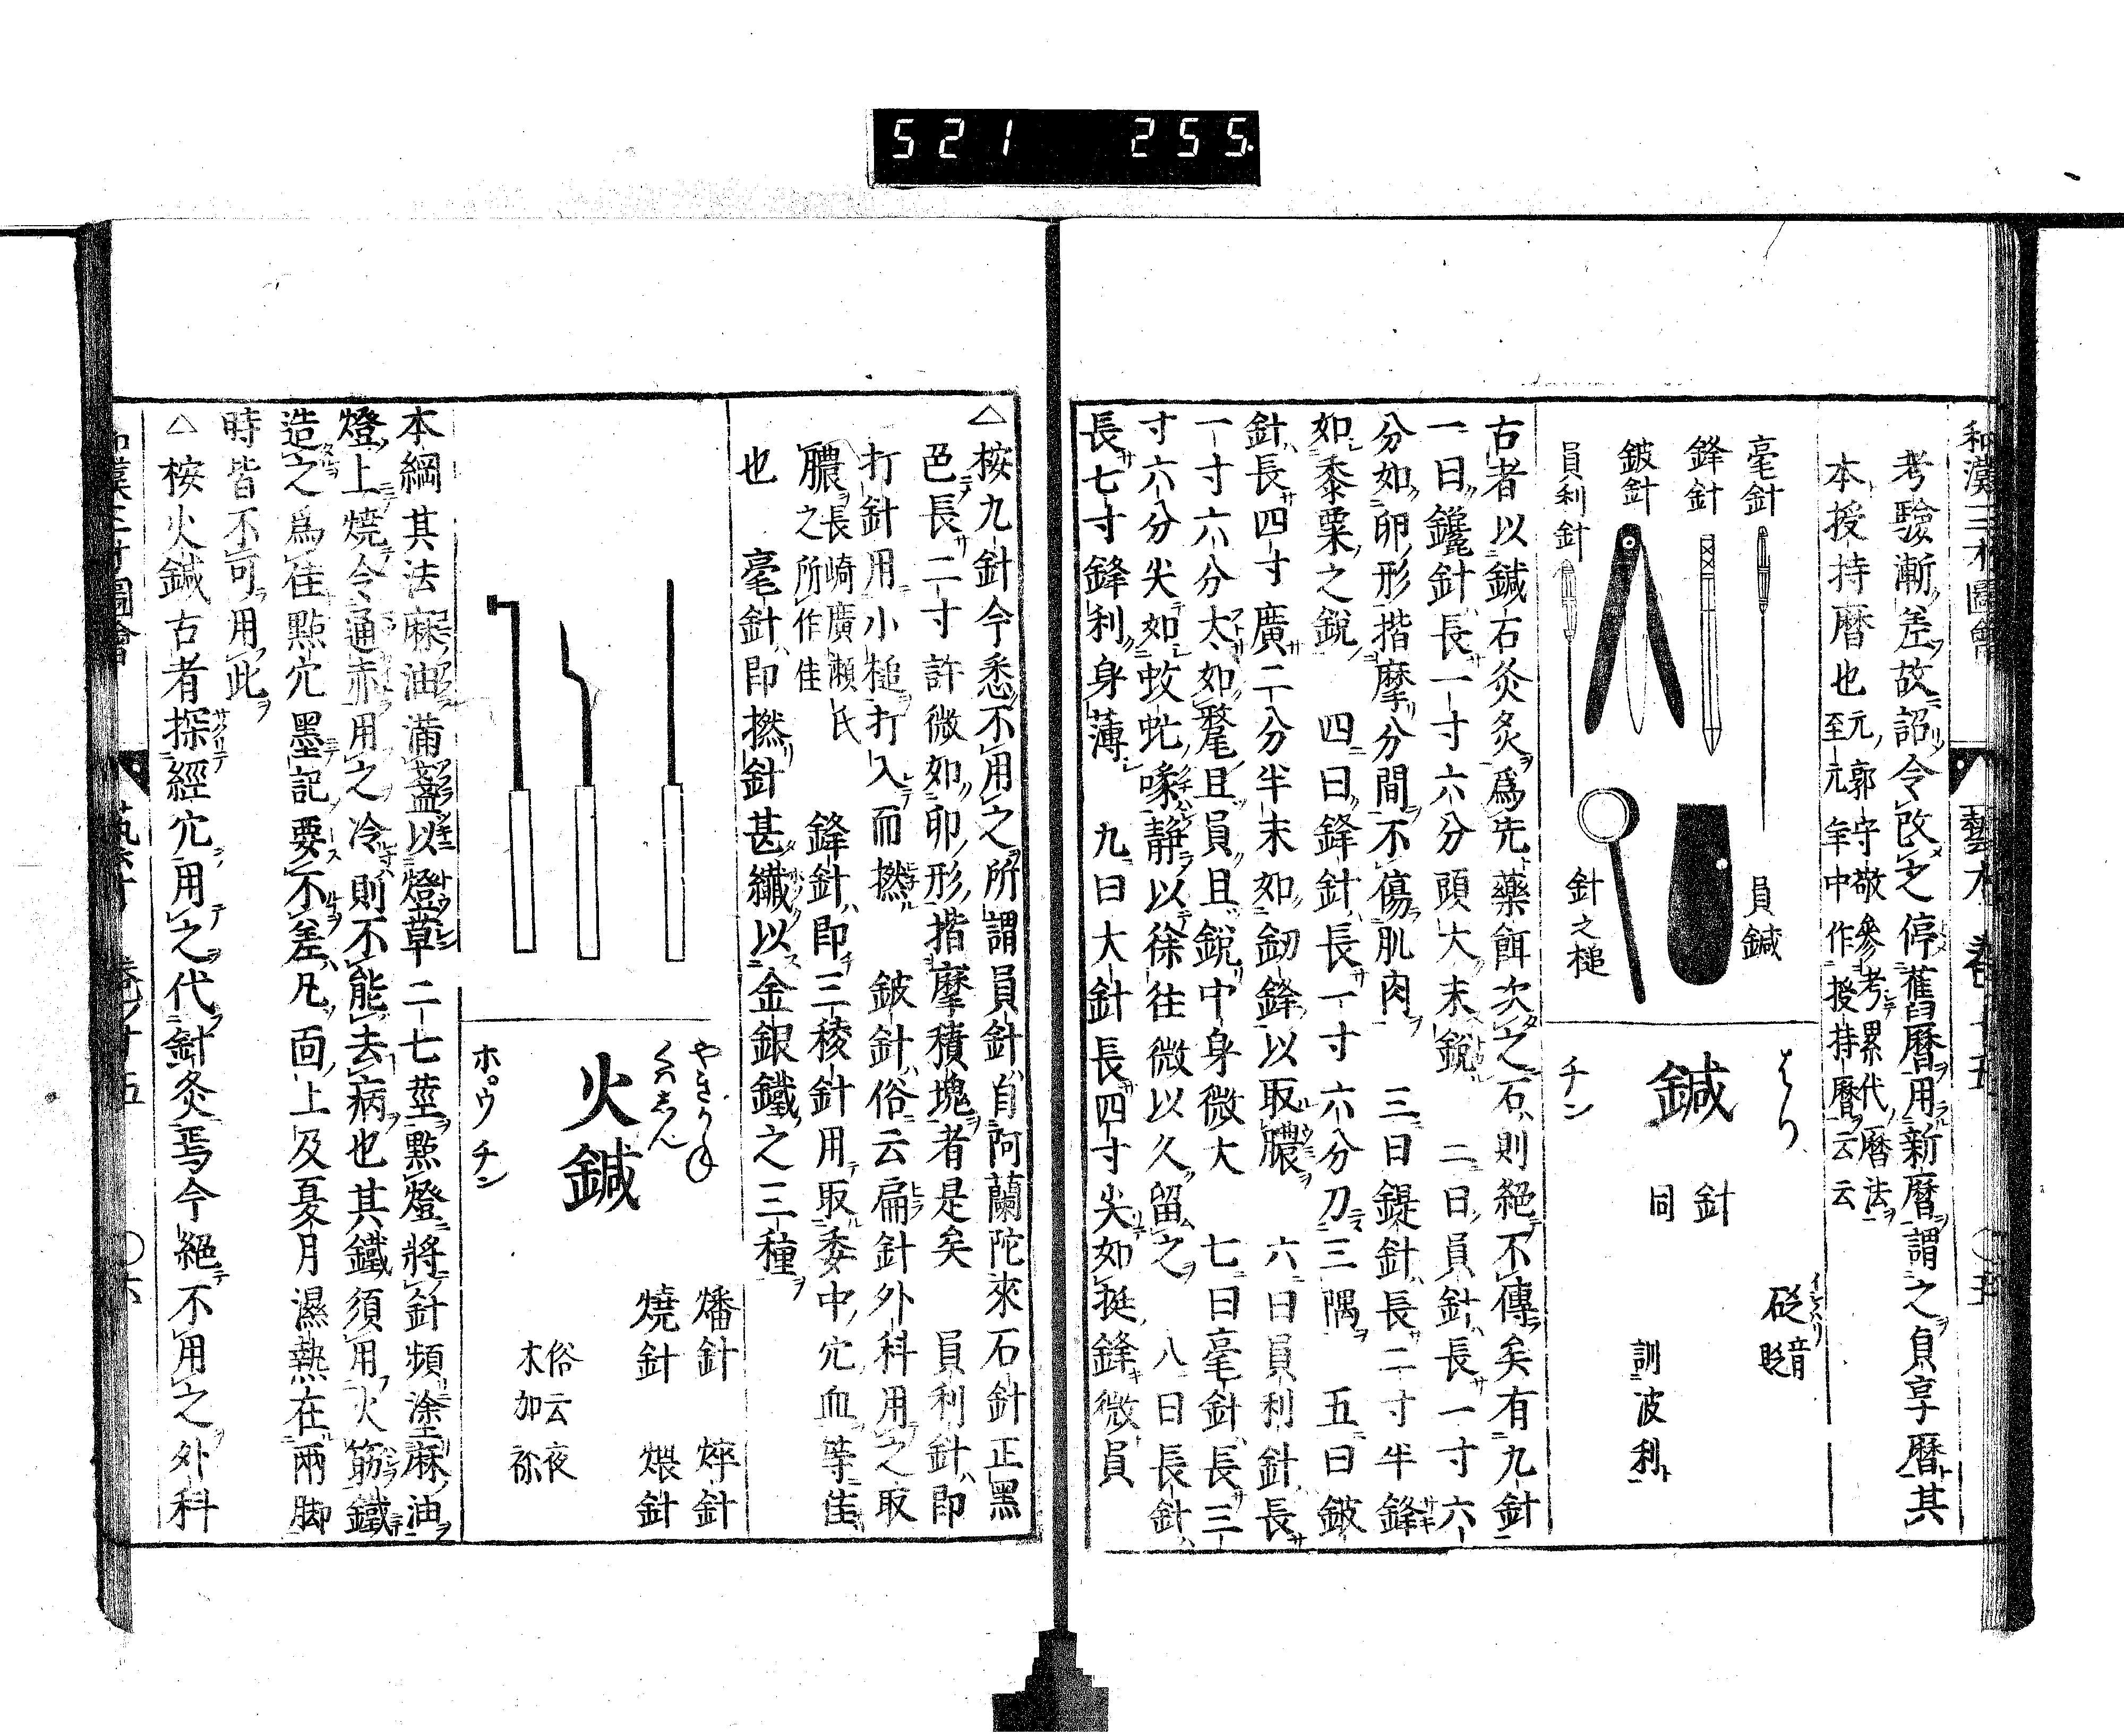 521 255.
和漢三才圖會 藝才 卷十五 〇五
考驗漸差故詔令改之停舊曆用新曆謂之貞享曆其
本授持曆也元郭守敬參考累代曆法
至元年中作授持曆云云
毫針
鋒針
鈹針
員利針
員鍼
針之槌
はり
鍼
チン
針
同
砭音
貶
訓波利
古者以鍼石灸爲先藥餌次之石則絕不傳矣有九針
一曰鑱針長一寸六分頭大末銳 二曰員針長一寸六
分如卵形揩摩分間不傷肌肉 三曰鍉針長二寸半鋒
如黍粟之銳 四曰鋒針長一寸六分刀三隅 五曰鈹
針長四寸廣二分半末如劒鋒以取膿 六曰員利針長
一寸六分大如氂且員且銳中身微大 七曰毫針長三
寸六分尖如蚊虻喙靜以徐往微以久留之 八曰長針
長七寸鋒利身薄 九曰大針長四寸尖如挺鋒微員
△按九針今悉不用之所謂員針自阿蘭陀來石針正黑
色長二寸許微如卵形揩摩積塊者是矣 員利針卽
打針用小槌打入而撚 鈹針俗云扁針外科用之取
膿長崎廣瀨氏
之所作佳 鋒針卽三稜針用取委中穴血等佳
也 毫針卽撚針甚纖以金銀鐵之三種
やきかね
くハしん
火鍼
ホウ チン
燔針 焠針
燒針 煨針
俗云夜
木加祢
本綱其法麻油滿盞以燈草二七莖點燈將針頻塗麻油
燈上燒令通赤用之冷則不能去病也其鐵須用火筯鐵
造之爲佳點穴墨記要不差凡面上及夏月濕熱在兩脚
時皆不可用此
△按火鍼古者探經穴用之代針灸焉今絕不用之外科